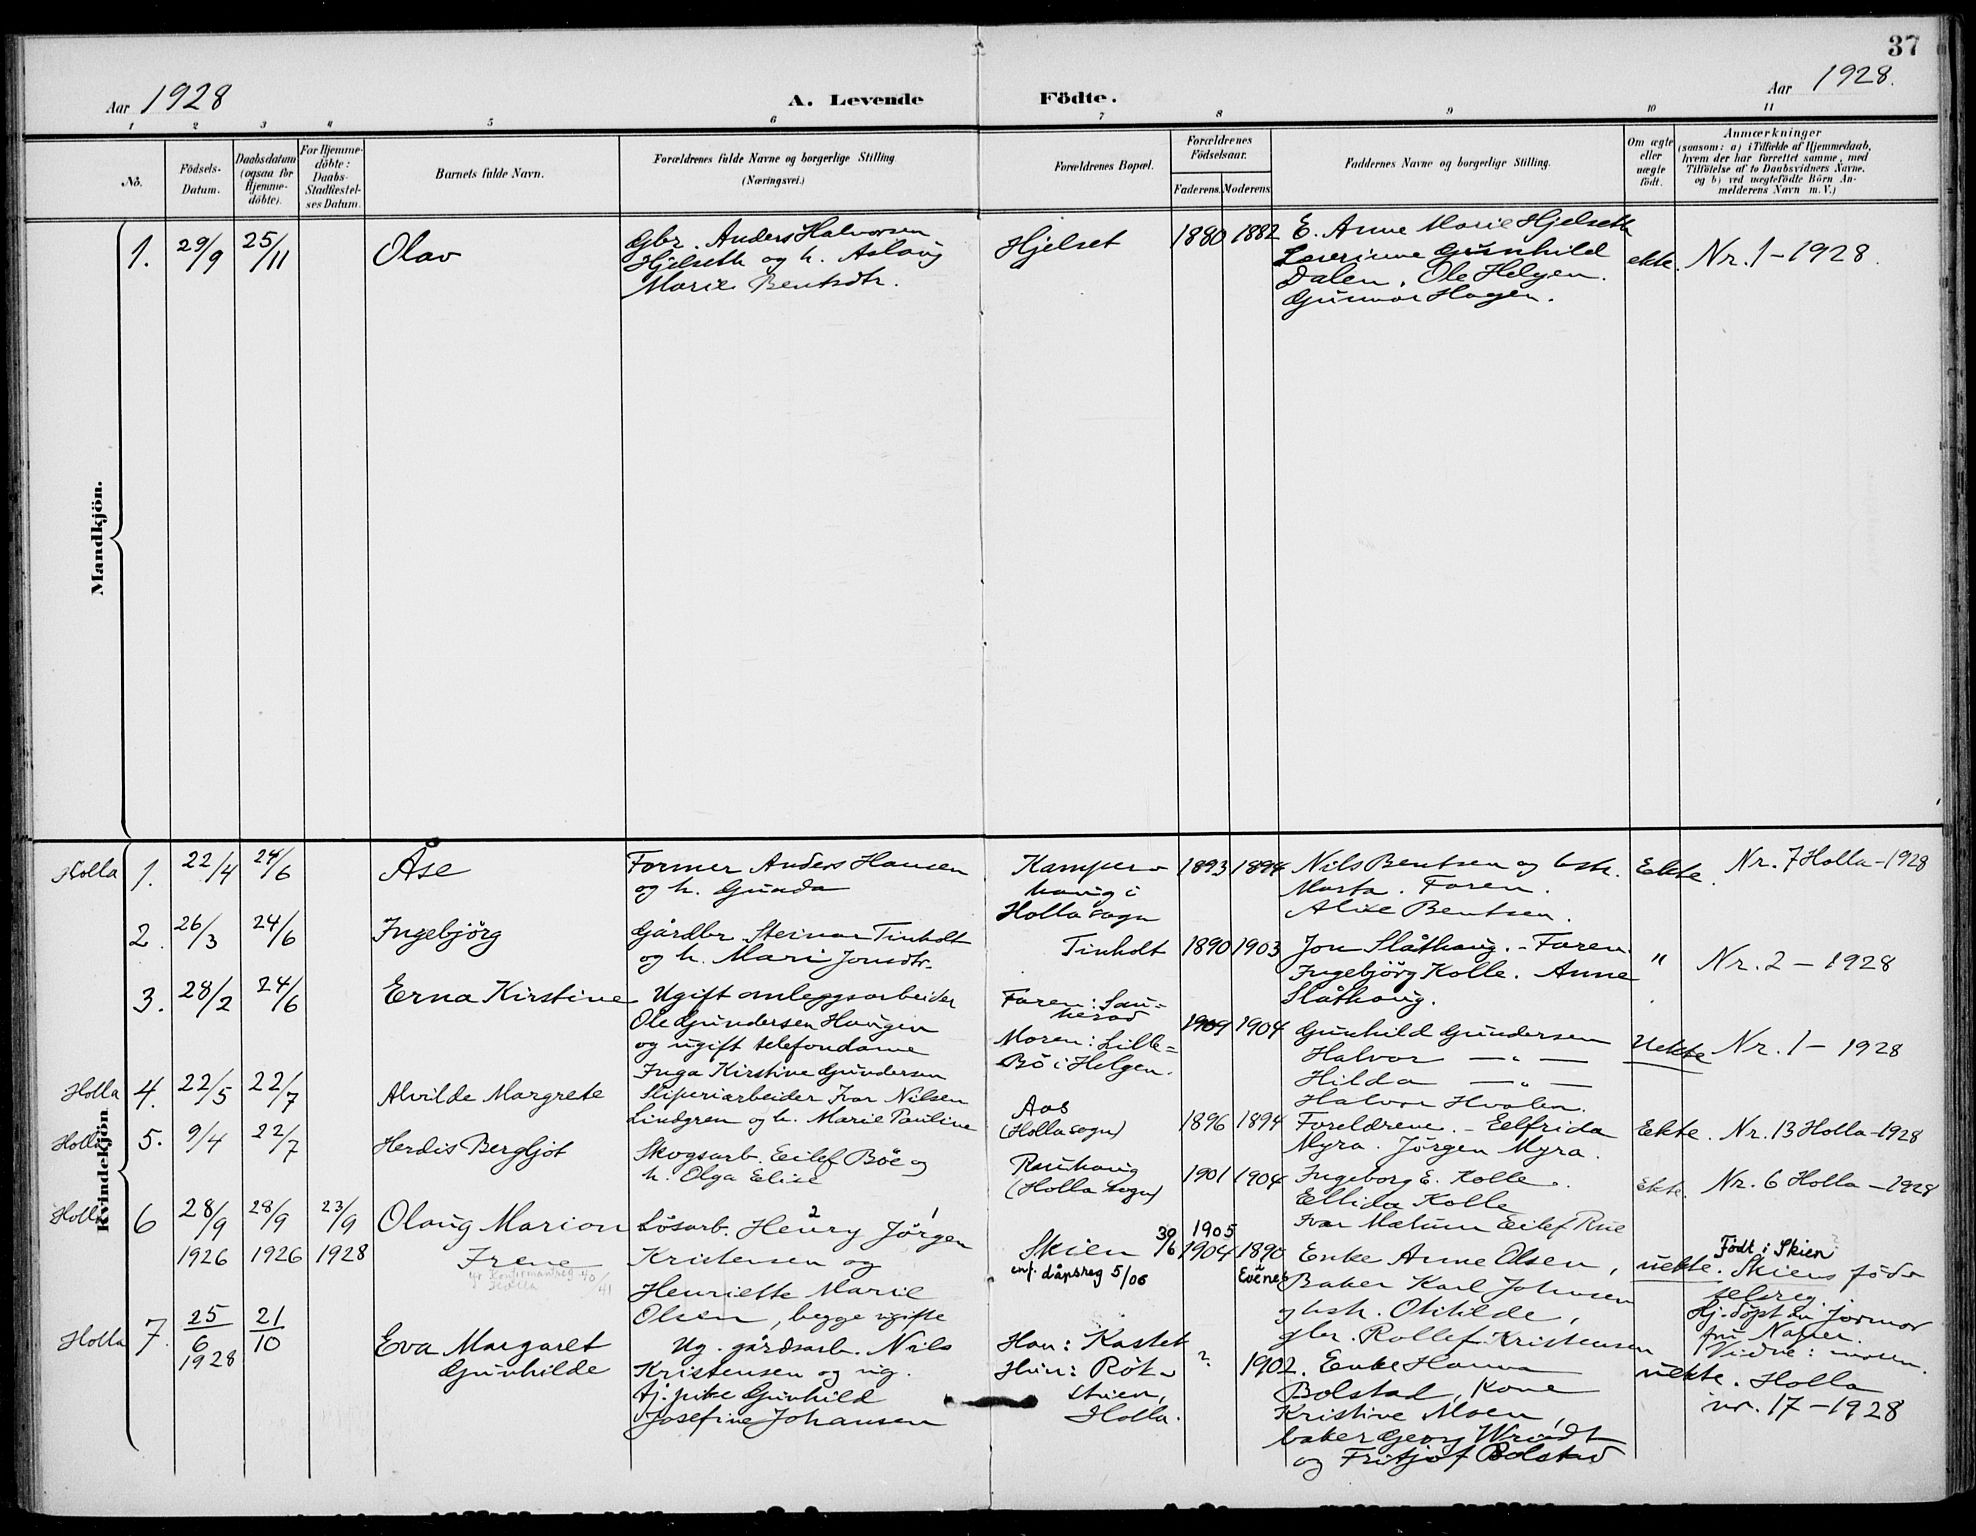 37
Aar 1928
A. Levende Födte.
Aar 1928.
1 2 3 4 5 6 7 8 9 10 11
No.
Födsels-
Datum.
Daabsdatum
(ogsaa for
Hjemme-
döbte).
For Hjemme-
döbte:
Daabs-
Stadfæstel-
ses Datum.
Barnets fulde Navn.
Forældrenes fulde Navne og borgerlige Stilling
(Næringsvei.)
Forældrenes Bopæl.
Forældrenes
Födselsaar.
Faderens. Moderens.
Faddernes Navne og borgerlige Stilling.
Om ægte
eller
uægte
födt.
Anmærkninger
(saasom: a) i Tilfælde af Hjemmedaab,
hvem der har forrettet samme, med
Tilföielse af to Daabsvidners Navne,
og b) ved uægtefödte Börn An-
melderens Navn m. V.)
Mandkjön.
1. 29/9 25/11 Olav
Gbr. Anders Halvorsen
Hjelseth og h. Aslaug
Marie Bentsdtr.
Hjelset
1880 1882
E. Anne Marie Hjelseth
Gunhild
Dalen. Ole Helgen.
Gunnar Hagen.
ekte. Nr. 1 - 1928.
Kvindekjön.
Holla 1. 22/4 24/6 Åse
Former Anders Hansen
og h. Gunda
Kamper-
haug i
Holla sogn
1893 1894
Nils Bentsen og hstr.
Marta. Faren.
Alise Bentsen.
Ekte. Nr. 7 Holla-1928
2. 26/3 24/6 Ingebjörg
Gårdbr. Steinar Tinholt
og h. Mari Jonsdtr.
Tinholt
1890 1903
Jon Slåthaug. - Faren
Ingebjörg Kolle. Anne
Slåthaug.
" Nr. 2 - 1928
3. 28/2 24/6 Erna Kirstine
Ugift anleggsarbeider
Ole Gundersen Haugen
og ugift telefondame
Inga Kirstine Gundersen
Faren: Sau=
herad
Moren: Lille=
Bö i Helgen.
1904
Gunhild Gundersen
Halvor — " —
Hilda — " —
Halvor Hvalen.
Uekte Nr. 1 - 1928
Holla 4. 22/5 22/7 Alvilde Margrete
Sliperiarbeider Ivar Nilsen
Lindgren og h. Marie Pauline
Aas
(Holla sogn)
1896 1894
Foreldrene. - Elfrida
Myra. Jörgen Myra.
Ekte. Nr. 13 Holla-1928
Holla 5. 9/4 22/7 Herdis Bergljot
Skogsarb. Eilef Böe og
h. Olga Elise
Rauhaug
(Holla sogn)
1901 1904
Ingeborg E. Kolle.
Ellida Kolle
Ivar Mælum Eilef Rue
ekte. Nr. 6 Holla - 1928
Holla 6 28/9 1926 28/9 1926 23/9 1928
Olaug Marion
Irene
Konfirmantreg 40/41
Holla
2 1
Løsarb. Henry Jörgen
Kristensen og
Henriette Marie
Olsen, begge ugifte
Skien
enf. dåpsreg 5/06
30/6 1905
1904 1890
i Evenes
Enke Anne Olsen,
Baker Karl Johnsen
og hstr. Otihilde,
gbr. Rollef Kristensen
uekte. Født i Skien
Skiens föd-
selsreg.
Hj. döpt av jormor
fru Napier.
Vidne: moren.
Holla 7. 25/6 1928 21/10
Eva Margaret
Gunhilde
Ug. gårdsarb. Nils
Kristensen og ug.
tj. pike Gunhild
Josefine Johansen
Han: Kastet
Hun: Röt-
Holla.
? 1902.
Enke Hanna
Bolstad, Kone
Kristine Moen,
baker Georg Wrindt
og Fritjof Bolstad
uekte. Holla
nr. 17 - 1928